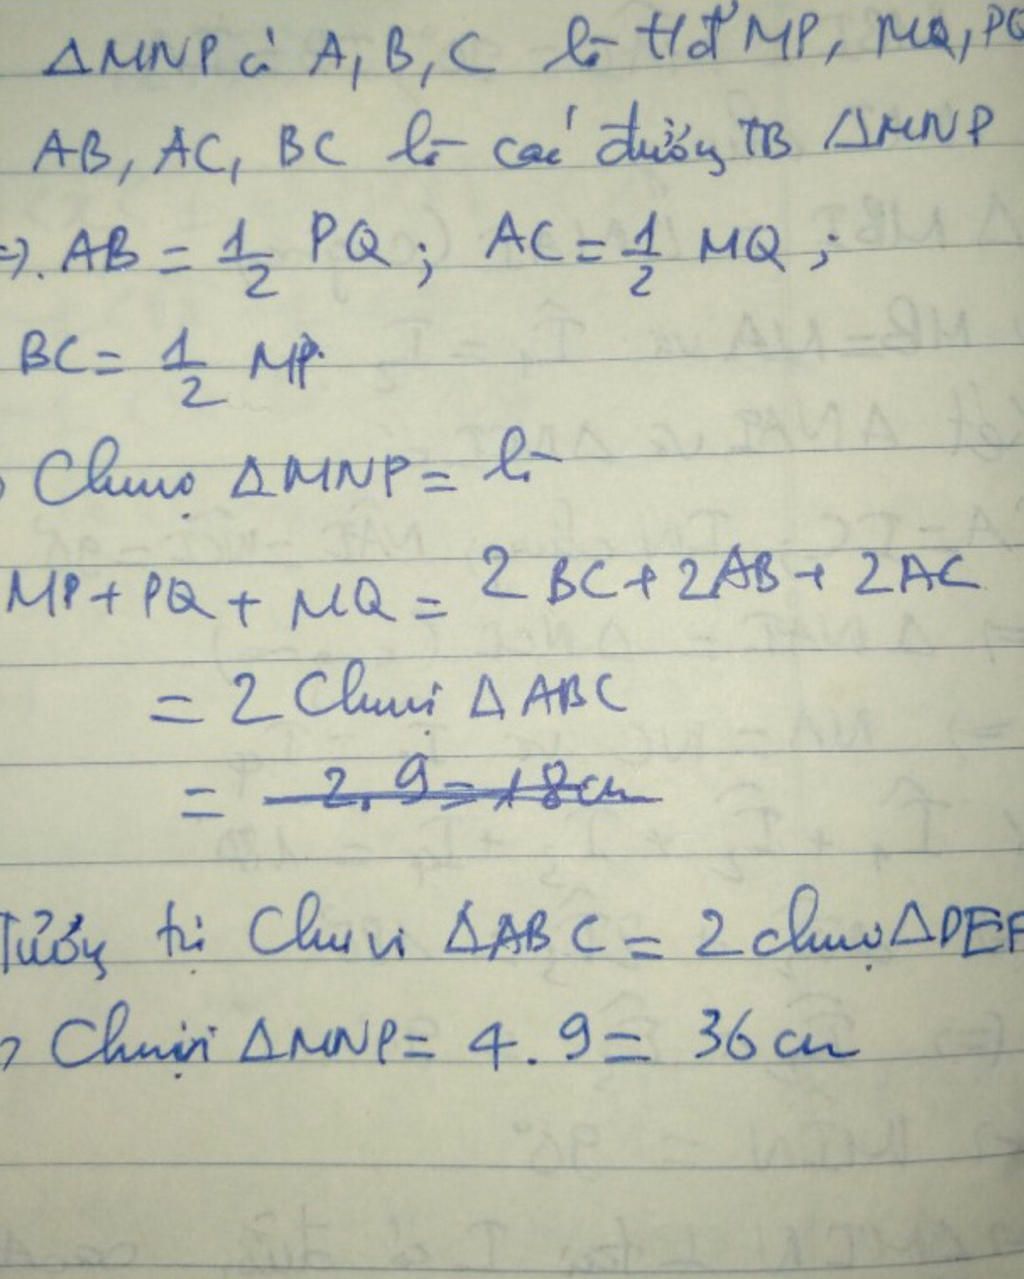 ΔMNP có A, B, C là tđ MP, MQ, PQ
AB, AC, BC là các đường TB ΔMNP
=>. AB = 1/2 PQ; AC = 1/2 MQ;
BC = 1/2 MP.
Chuvi ΔMNP = là
MP + PQ + MQ = 2BC + 2AB + 2AC
= 2 Chuvi ΔABC
= 2.9 = 18cm
Tương tự Chuvi ΔABC = 2 chuvi ΔDEF
Chuvi ΔMNP = 4.9 = 36 cm